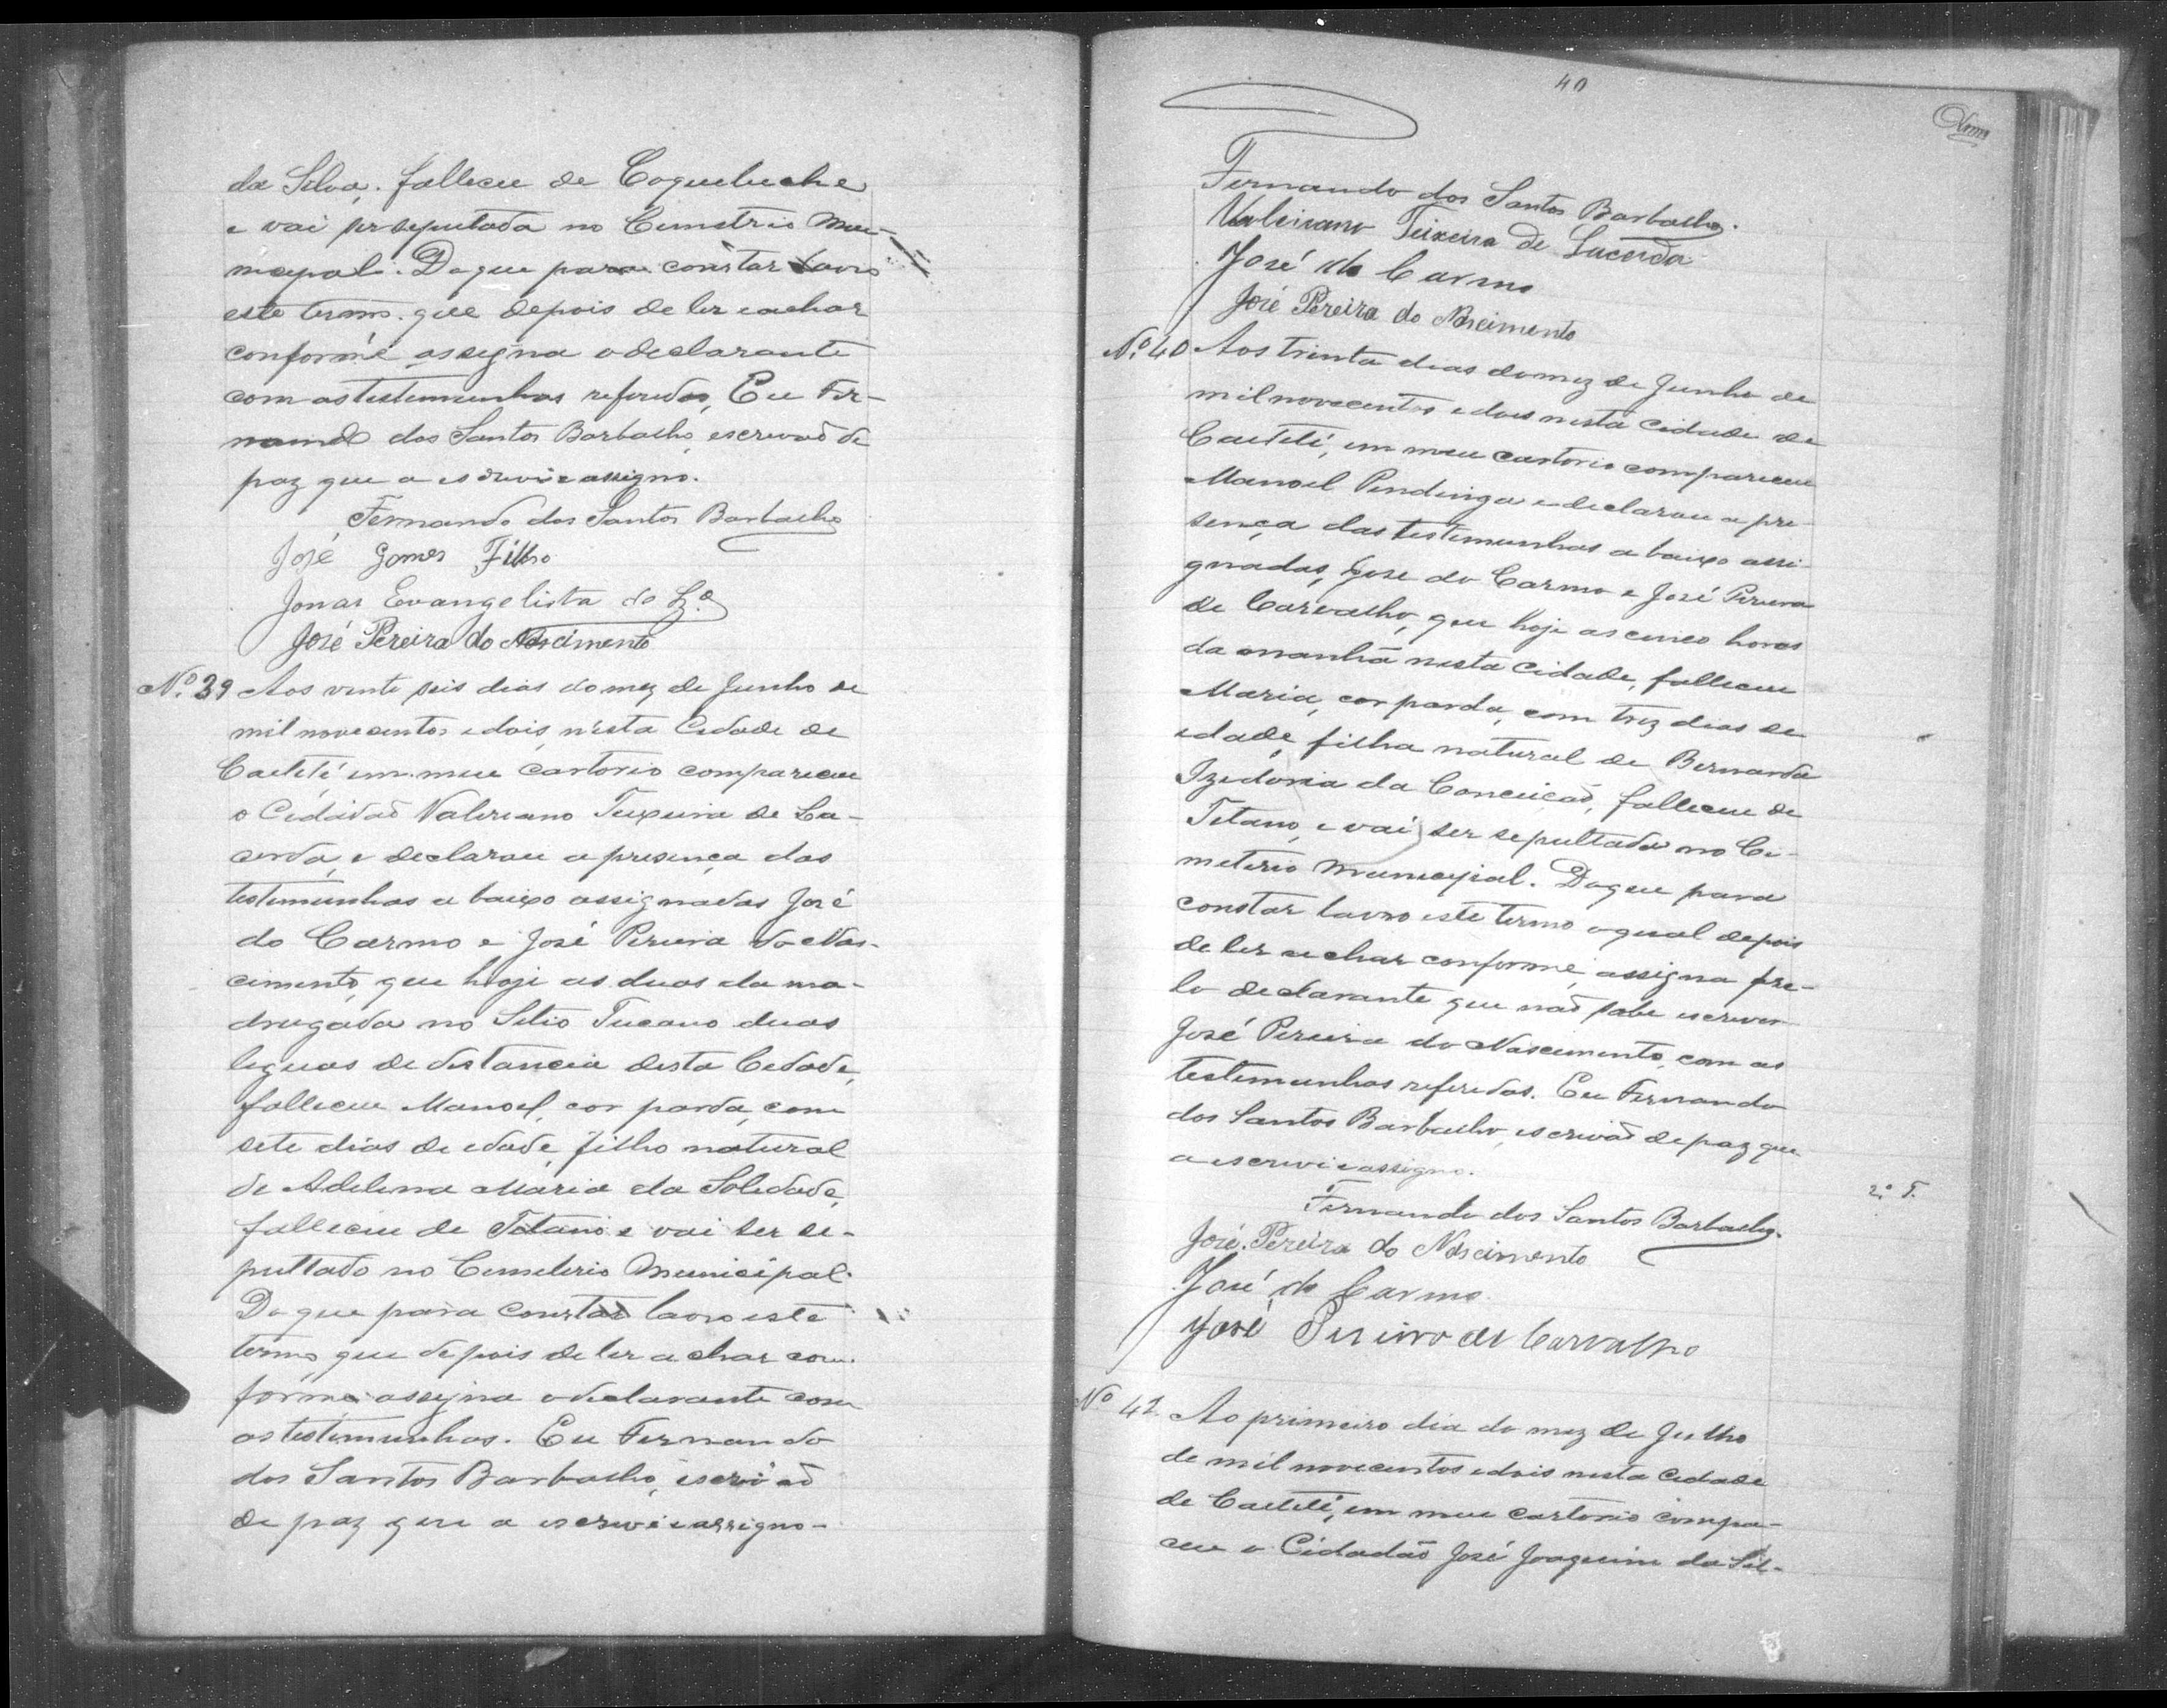 da Silva, falleceu de Coqueluche
e vai ser sepultada no Cemetrio Mu-
nicipal. Do que para constar lavro
este termo que depois de ler e achar
conforme assigna o declarante
com as testemunhas referidas, Eu Fer-
nando dos Santos Barbalho, escrivaõ de
paz que a escrevi e assigno.
Fernando dos Santos Barbalho
José Gomes Filho
Jonas Evangelista de
José Pereira do Nascimento
Nº. 39 Aos vente seis dias do mez de Junho de
mil novecentos e dois, nesta Cidade de
Caeteté em meu cartorio compareceu
o Cidadaõ Valeriano Teixeira de La-
cerda, e declarou a presença das
testemunhas a baixo assignadas José
do Carmo e José Pereira do Nas-
cimento, que hoje as duas da ma-
drugada no Sitio Tucano duas
leguas de distancia desta Cidade,
falleceu Manoel, cor parda, com
sete dias de edade, filho natural
de Adelina Maria da Soledade,
falleceu de Tetano e vai ser se-
pultado no Cemeterio Municipal.
Do que para constar lavro este
termo que depois de ler e achar con-
forme assigna o declarante com
as testemunhas. Eu Fernando
dos Santos Barbalho, escrivaõ
de paz que a escrevi e assigno-
40
Fernando dos Santos Barbalho.
Valeriano Teixeira de Lacerda
José do Carmo
José Pereira do Nascimento
Nº. 40 Aos trinta dias do mez de Junho de
mil novecentos e dois nesta Cidade de
Caeteté, em meu cartorio compareceu
Manoel Pindinga e declarou a pre-
sença das testemunhas a baixo assi-
gnadas, Jose do Carmo e José Pereira
de Carvalho, que hoje as cinco horas
da manhã nesta Cidade, falleceu
Maria, cor parda, com trez dias de
edade, filha natural de Bernarda
Izedoria da Conceicaõ, falleceu de
Tetano, e vai ser sepultada no Ce-
meterio Municipal. Do que para
constar lavro este termo o qual depois
de ler e achar conforme, assigna pe-
lo declarante que naõ sabe escrever
José Pereira do Nascimento, com as
testemunhas referidas. Eu Fernando
dos Santos Barbalho, escrivaõ de paz que
a escrevi e assigno.
2º T.
Fernando dos Santos Barbalho.
José Pereira do Nascimento
José do Carmo
José Pereira de Carvalho
Nº 41 Ao primeiro dia do mez de Julho
de mil novecentos e dois nesta Cidade
de Caeteté, em meu cartorio compa-
ceu o Cidadão José Joaquim da Sil-